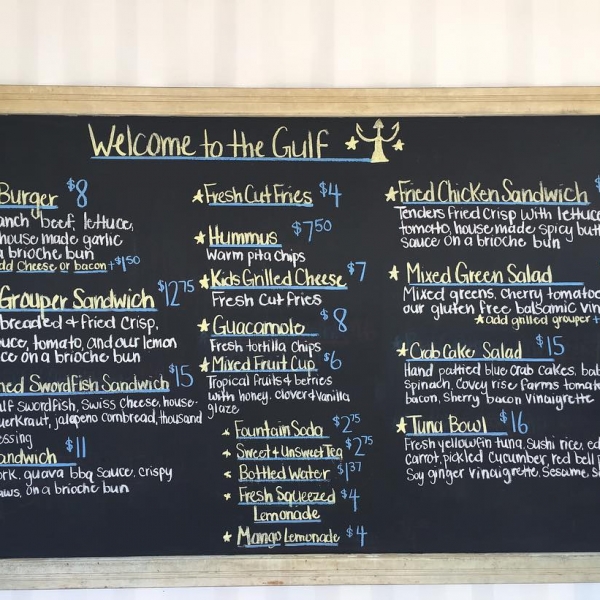 Welcome to the Gulf
Burger $8
anch beef, lettuce,
house made garlic
a brioche bun
add cheese or bacon + $1.50
Grouper Sandwich $12.75
breaded + fried crisp,
uce, tomato, and our lemon
ce on a brioche bun
ned Swordfish Sandwich $15
ulf swordfish, swiss cheese, house-
uerkraut, jalapeno cornbread, thousand
essing
andwich $11
ork, guava bbq sauce, crispy
aws, on a brioche bun
Fresh Cut Fries $4
Hummus $7.50
Warm pita chips
Kids Grilled Cheese $7
Fresh cut fries
Guacamole $8
Fresh tortilla chips
Mixed Fruit Cup $6
Tropical fruits + berries
with honey, clover + vanilla
glaze
Fountain Soda $2.75
Sweet + Unsweet Tea $2.75
Bottled Water $1.37
Fresh Squeezed $4
Lemonade
Mango Lemonade $4
Fried Chicken Sandwich $
Tenders fried crisp with lettuce
tomato, house made spicy butt
sauce on a brioche bun
Mixed Green Salad
Mixed greens, cherry tomatoe
our gluten free balsamic vin
add grilled grouper +
Crab Cake Salad $15
Hand pattied blue crab cakes, bab
spinach, Covey rise farms tomat
bacon, sherry bacon vinaigrette
Tuna Bowl $16
Fresh yellowfin tuna, sushi rice, ed
carrot, pickled cucumber, red bell p
Soy ginger vinaigrette, sesame, s